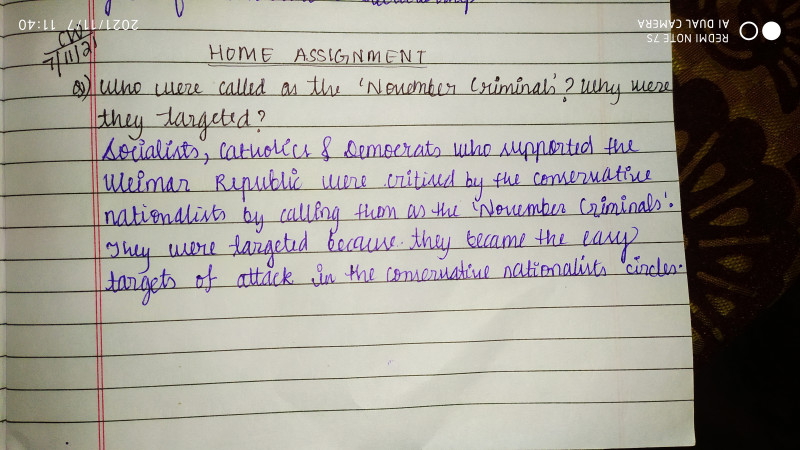 2021/11/7 11:40
REDMI NOTE 7S
AI DUAL CAMERA
CW
7/11/21
HOME ASSIGNMENT
Q) Who were called as the 'November Criminals'? Why were
they targeted?
Socialists, Catholics & Democrats who supported the
Weimar Republic were critized by the conservative
nationalists by calling them as the 'November Criminals'.
They were targeted because they became the easy
targets of attack in the conservative nationalists circles.